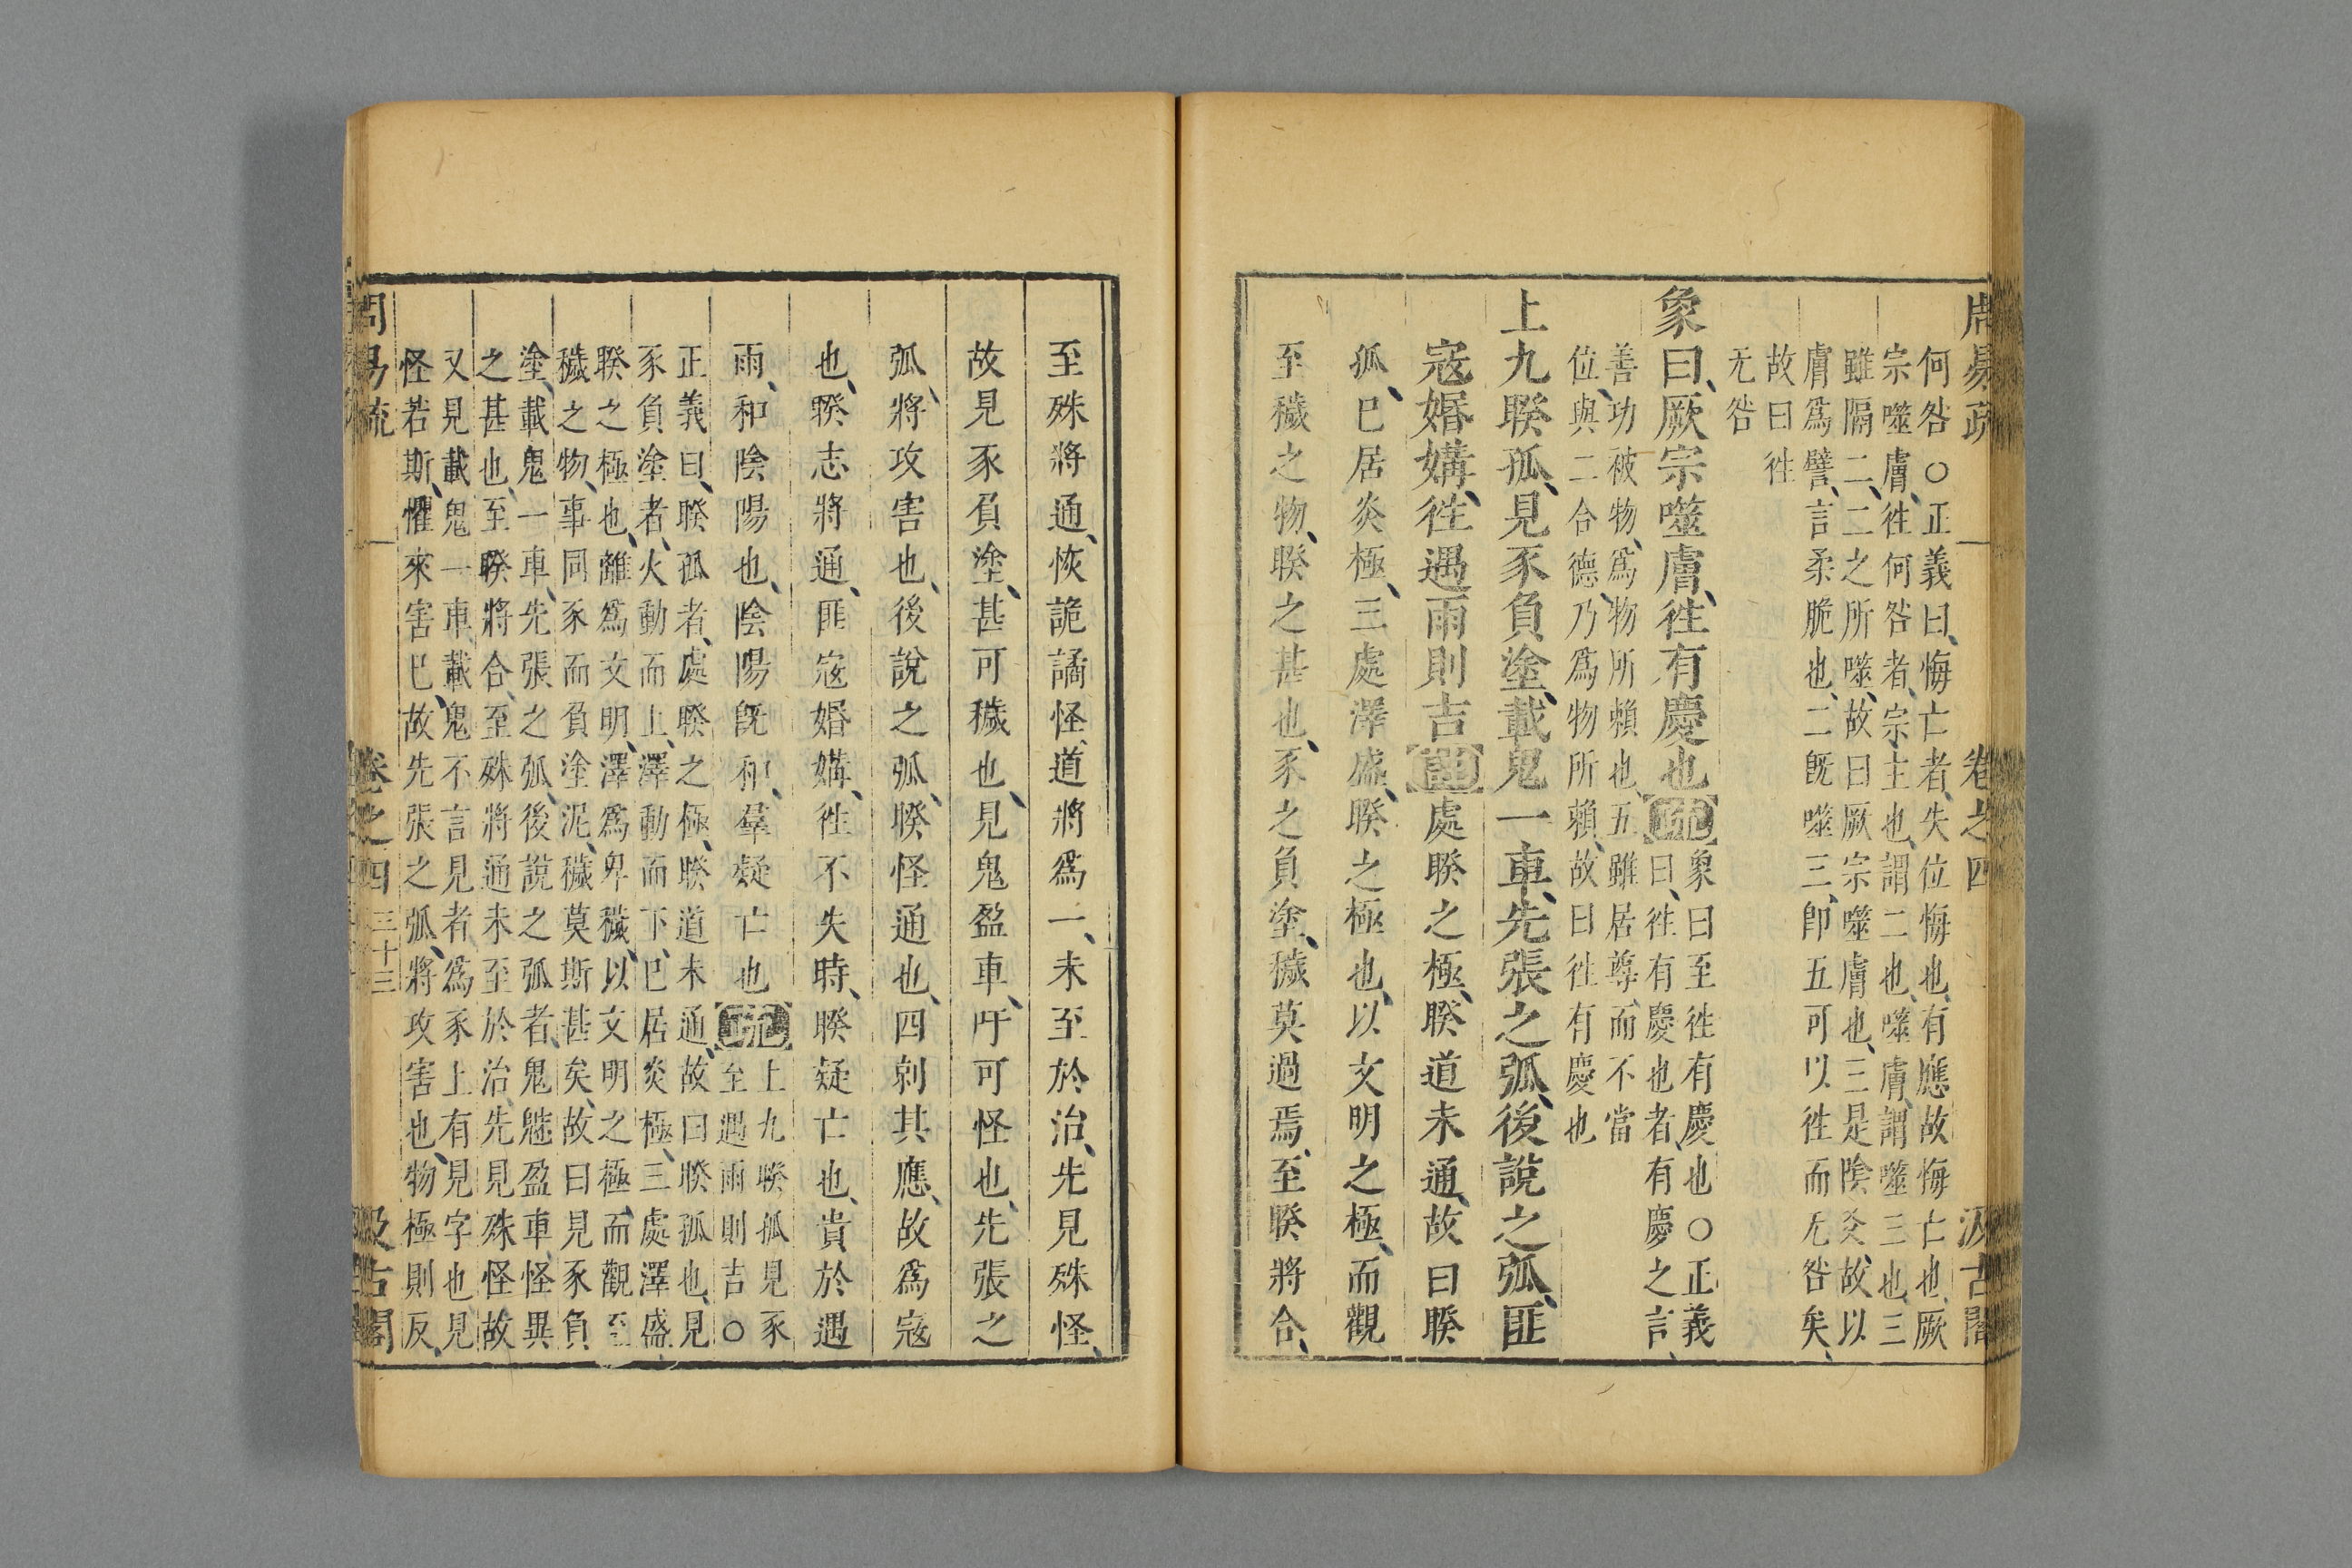 周易疏　卷之四　汲古閣
何咎○正義曰、悔亡者、失位悔也、有應故悔亡也、厥
宗噬膚、徃何咎者、宗、主也、謂二也、噬膚、謂噬三也、三
雖隔二、二之所噬、故曰厥宗噬膚也、三是陰爻、故以
膚爲譬、言柔脆也、二旣噬三、卽五可以徃而无咎矣、
故曰徃
无咎
象曰、厥宗噬膚、徃有慶也疏
象曰至徃有慶也○正義
曰、徃有慶也者、有慶之言、
善功被物、爲物所頼也、五雖居尊、而不當
位、與二合德、乃爲物所頼、故曰徃有慶也
上九睽孤、見豕負塗、載鬼一車、先張之弧、後說之弧、匪
寇婚媾、徃遇雨則吉註處睽之極、睽道未通、故曰睽
孤、巳居炎極、三處澤盛、睽之極也、以文明之極、而觀
至穢之物、睽之甚也、豕之負塗、穢莫過焉、至睽將合、
至殊將通、恢詭譎怪、道將爲一、未至於治、先見殊怪、
故見豕負塗、甚可穢也、見鬼盈車、吁可怪也、先張之
弧、將攻害也、後說之弧、睽怪通也、四剠其應、故爲寇
也、睽志將通、匪寇婚媾、徃不失時、睽疑亡也、貴於遇
雨、和陰陽也、陰陽旣和、羣疑亡也疏
上九睽孤見豕
至遇雨則吉○
正義曰、睽孤者、處睽之極、睽道未通、故曰睽孤也、見
豕負塗者、火動而上、澤動而下、巳居炎極、三處澤盛、
睽之極也、離爲文明、澤爲卑穢、以文明之極、而觀至
穢之物、事同豕而負塗泥、穢莫斯甚矣、故曰見豕負
塗、載鬼一車、先張之弧、後說之弧者、鬼魅盈車、怪異
之甚也、至睽將合、至殊將通、未至於治、先見殊怪故
又見載鬼一車、載鬼不言見者、爲豕上有見字也、見
怪若斯、懼來害巳、故先張之弧、將攻害也、物極則反、
周易疏　卷之四　三十三　汲古閣